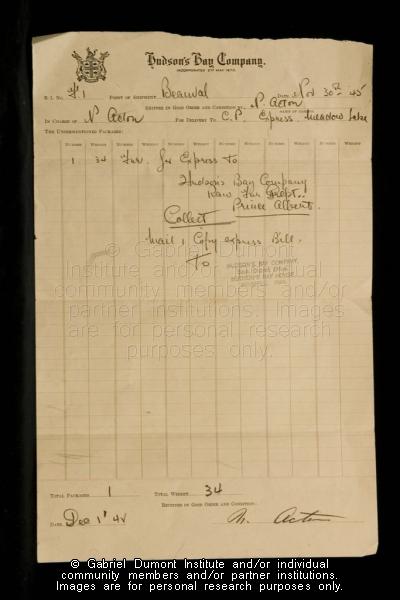 Hudson's Bay Company.
INCORPORATED 2ND MAY 1670.
B. L. No. F1 POINT OF SHIPMENT Beauval DATE Nov 30th 45
RECEIVED IN GOOD ORDER AND CONDITION BY P. Acton
IN CHARGE OF N Acton FOR DELIVERY TO C.P. Express Meadow Lake
THE UNDERMENTIONED PACKAGES:
NUMBER WEIGHT NUMBER WEIGHT NUMBER WEIGHT NUMBER WEIGHT NUMBER WEIGHT NUMBER WEIGHT
1 34 Fur. for Express to
Hudson's Bay Company
Raw Fur Dept..
Prince Albert.
Collect
Mail 1 Copy express Bill.
To
HUDSON'S BAY COMPANY
HUDSON'S BAY HOUSE
© Gabriel Dumont
Institute and/or individual
community members and/or partner
institutions. Images
are for personal research
purposes only.
TOTAL PACKAGES 1 TOTAL WEIGHT 34
RECEIVED IN GOOD ORDER AND CONDITION:
DATE Dec 1st 45 N. Acton
© Gabriel Dumont Institute and/or individual
community members and/or partner institutions.
Images are for personal research purposes only.